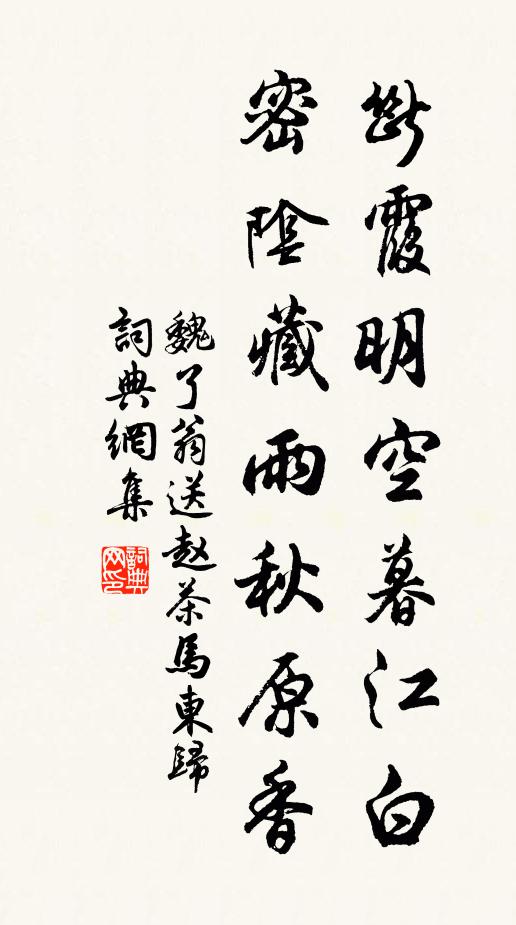 斷霞明空暮江白
密陰藏雨秋原香
魏了翁送赵茶馬東歸
詞典網集
詞典网印